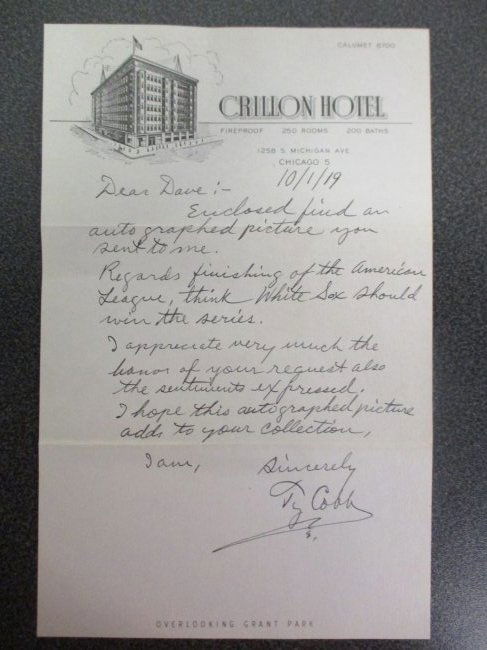 CALUMET 6700
CRILLON HOTEL
FIREPROOF 250 ROOMS 200 BATHS
1258 S. MICHIGAN AVE
CHICAGO 5
10/1/19
Dear Dave:-
Enclosed find an
autographed picture you
sent to me.
Regards finishing of the American
League, think White Sox should
win the series.
I appreciate very much the
honor of your request also
the sentiments expressed.
I hope this autographed picture
adds to your collection,
I am, Sincerely
Ty Cobb
OVERLOOKING GRANT PARK